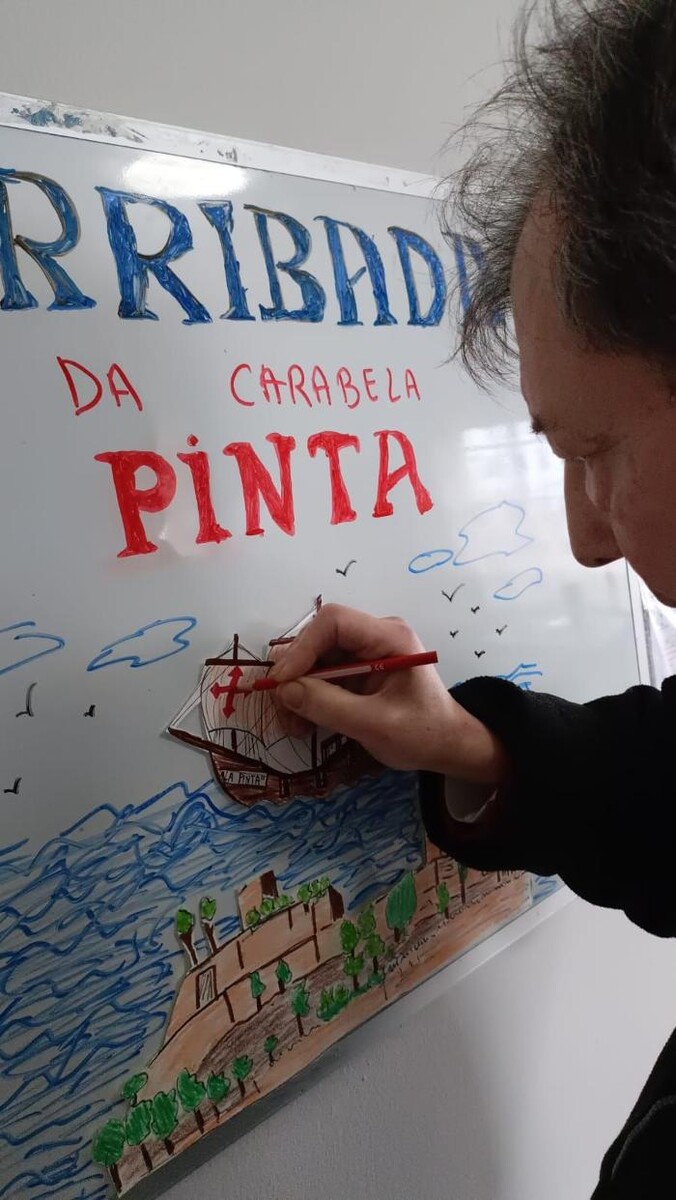 RRIBADA
DA CARABELA
PiNTA
"LA PINTA"